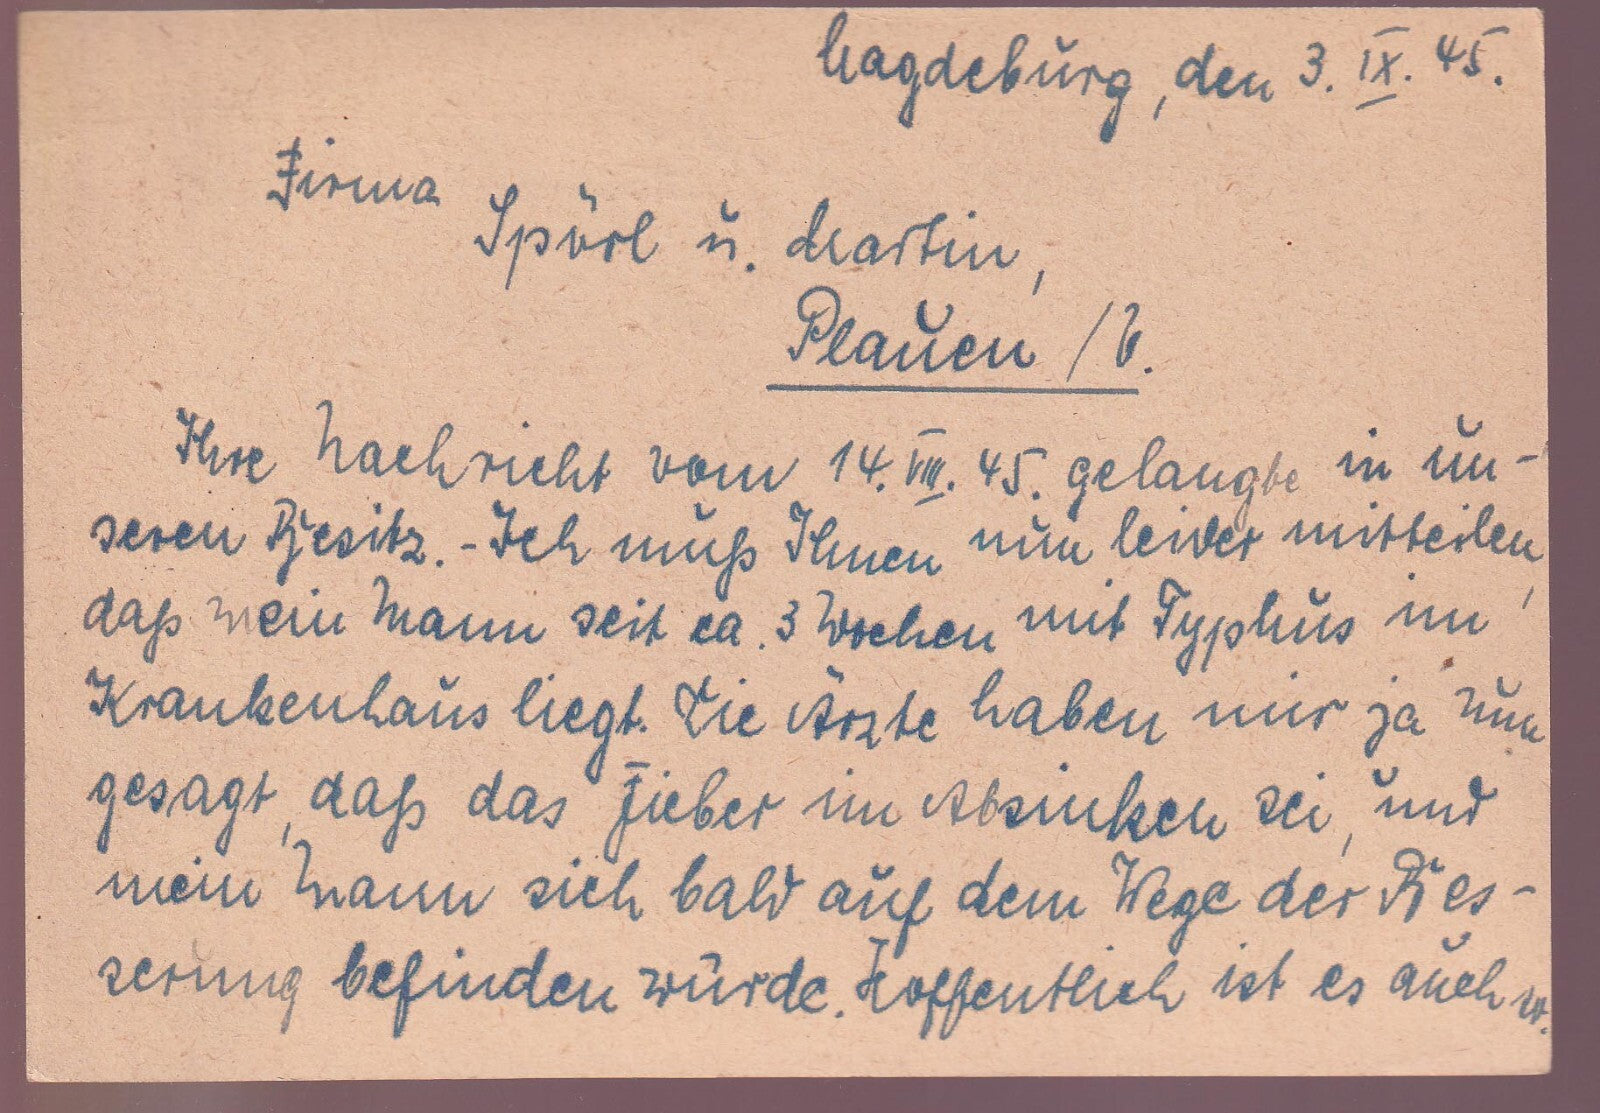 Magdeburg, den 3. IX. 45.
Firma
Spörl u. Martin,
Plauen /V.
Ihre Nachricht vom 14. VIII. 45. gelangte in un-
seren Besitz. - Ich muß Ihnen nun leider mitteilen,
daß mein Mann seit ca. 3 Wochen mit Typhus im
Krankenhaus liegt. Die Ärzte haben mir ja nun
gesagt, daß das Fieber im Absinken sei, und
mein Mann sich bald auf dem Wege der Bes-
serung befinden würde. Hoffentlich ist es auch so.